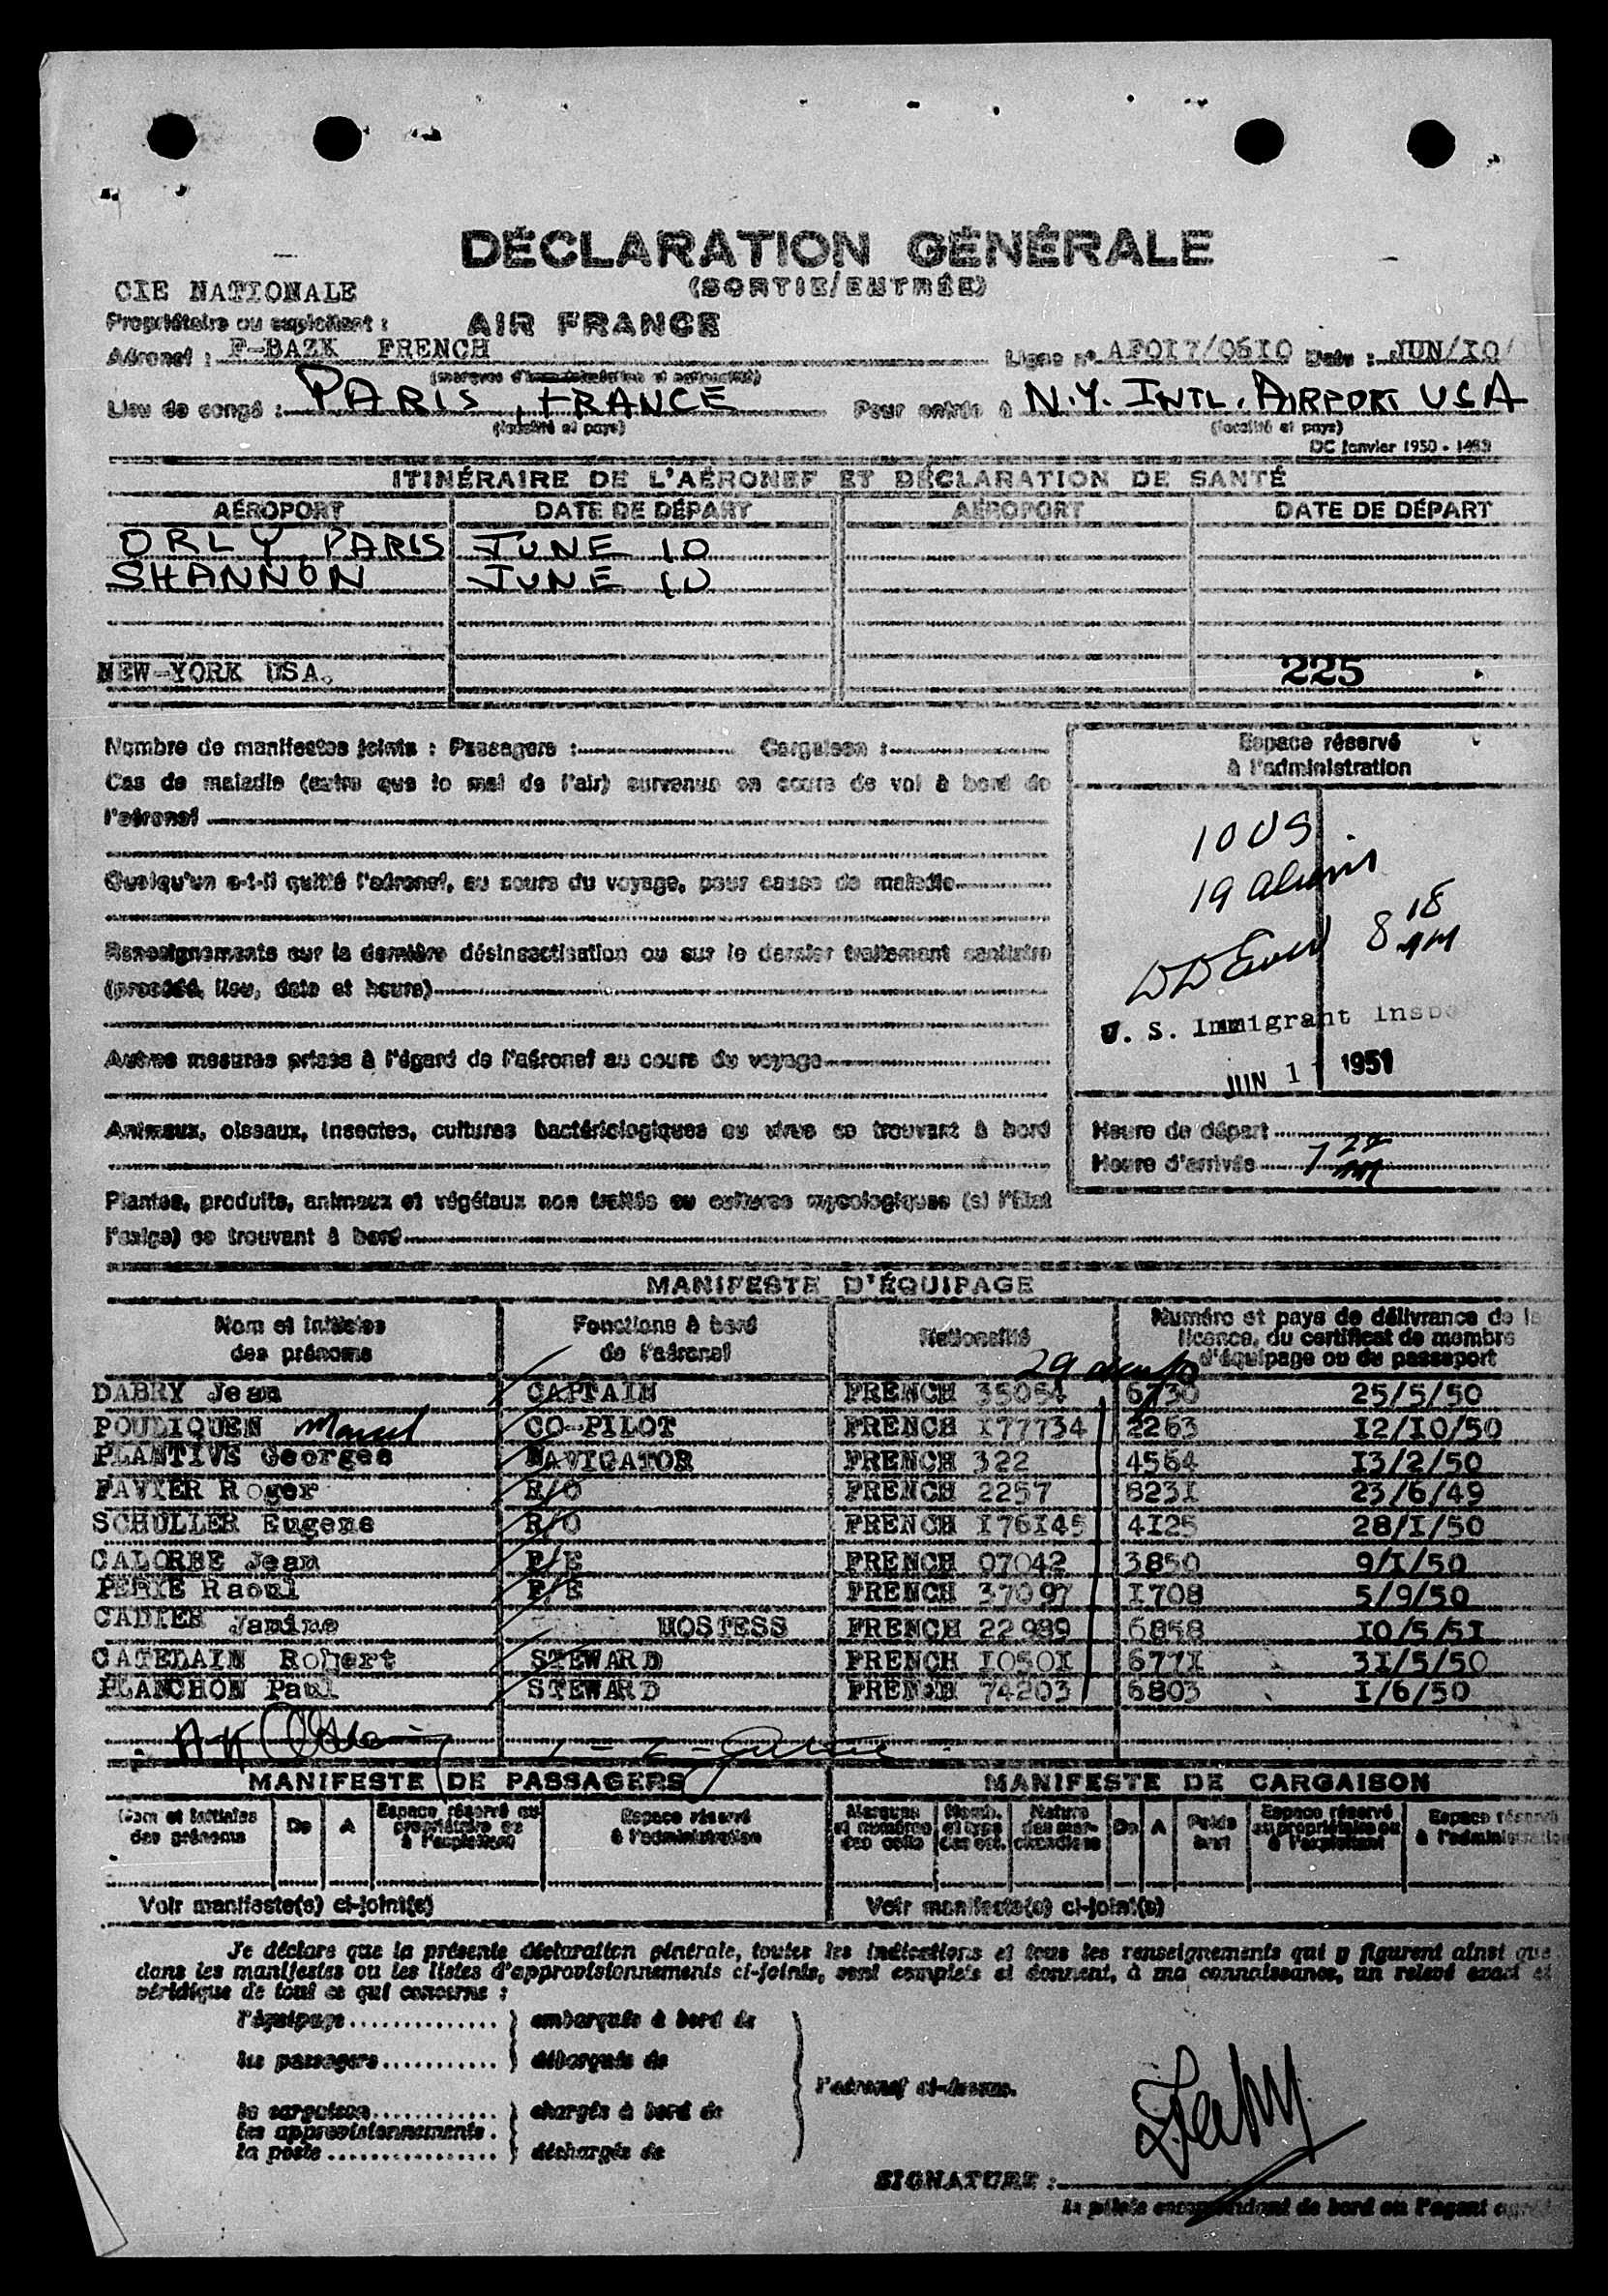 DÉCLARATION GÉNÉRALE
(SORTIE/ENTRÉE)
CIE NATIONALE
Propriétaire ou exploitant : AIR FRANCE
Aéronef : F-BAZK FRENCH Ligne n° AF017/0610 Date : JUN/10/
(marques d'immatriculation et nationalité)
Lieu de congé : PARIS, FRANCE Pour entrée à N.Y. INTL. AIRPORT USA
(localité et pays) (localité et pays)
DC Janvier 1950 - 1493
ITINÉRAIRE DE L'AÉRONEF ET DÉCLARATION DE SANTÉ
AÉROPORT DATE DE DÉPART AÉROPORT DATE DE DÉPART
ORLY, PARIS JUNE 10
SHANNON JUNE 10
NEW-YORK USA. 225
Nombre de manifestes joints : Passagers : Cargaison :
Cas de maladie (autre que le mal de l'air) survenus en cours de vol à bord de
l'aéronef
Quelqu'un a-t-il quitté l'aéronef, au cours du voyage, pour cause de maladie
Renseignements sur la dernière désinsectisation ou sur le dernier traitement sanitaire
(procédé, lieu, date et heure)
Autres mesures prises à l'égard de l'aéronef au cours du voyage
Animaux, oiseaux, insectes, cultures bactériologiques ou virus se trouvant à bord
Plantes, produits, animaux et végétaux non traités ou cultures mycologiques (si l'État
l'exige) se trouvant à bord
Espace réservé
à l'administration
10 US
19 aliens
8 18 AM
U. S. Immigrant Insp
JUN 11 1951
Heure de départ
Heure d'arrivée 7
MANIFESTE D'ÉQUIPAGE
Nom et initiales des prénoms Fonctions à bord de l'aéronef Nationalité Numéro et pays de délivrance de la licence, du certificat de membre d'équipage ou du passeport
29
DABRY Jean CAPTAIN FRENCH 35054 6730 25/5/50
POUDIQUEN Marcel CO-PILOT FRENCH 177734 2263 12/10/50
PLANTIVE Georges NAVIGATOR FRENCH 322 4564 13/2/50
FAVIER Roger R/O FRENCH 2257 8231 23/6/49
SCHULLER Eugene R/O FRENCH 176145 4125 28/1/50
CALORBE Jean F/E FRENCH 07042 3850 9/1/50
PERIE Raoul F/E FRENCH 37097 1708 5/9/50
CADIER Janine HOSTESS FRENCH 22989 6858 10/5/51
CATELAIN Robert STEWARD FRENCH 10501 6771 31/5/50
PLANCHON Paul STEWARD FRENCH 74203 6803 1/6/50
MANIFESTE DE PASSAGERS MANIFESTE DE CARGAISON
Nom et initiales des prénoms De A Espace réservé au propriétaire ou à l'exploitant Espace réservé à l'administration Marques et numéros des colis Nomb. et type des col. Nature des marchandises De A Poids brut Espace réservé au propriétaire ou à l'exploitant Espace réservé à l'administration
Voir manifeste(s) ci-joint(s) Voir manifeste(s) ci-joint(s)
Je déclare que la présente déclaration générale, toutes les indications et tous les renseignements qui y figurent ainsi que
dans les manifestes ou les listes d'approvisionnements ci-joints, sont complets et donnent, à ma connaissance, un relevé exact et
véridique de tout ce qui concerne :
l'équipage.............. } embarqués à bord de
les passagers........... } débarqués de
l'aéronef ci-dessus.
la cargaison............ } chargés à bord de
les approvisionnements.
la poste ................ } déchargés de
SIGNATURE :
Le pilote commandant de bord ou l'agent